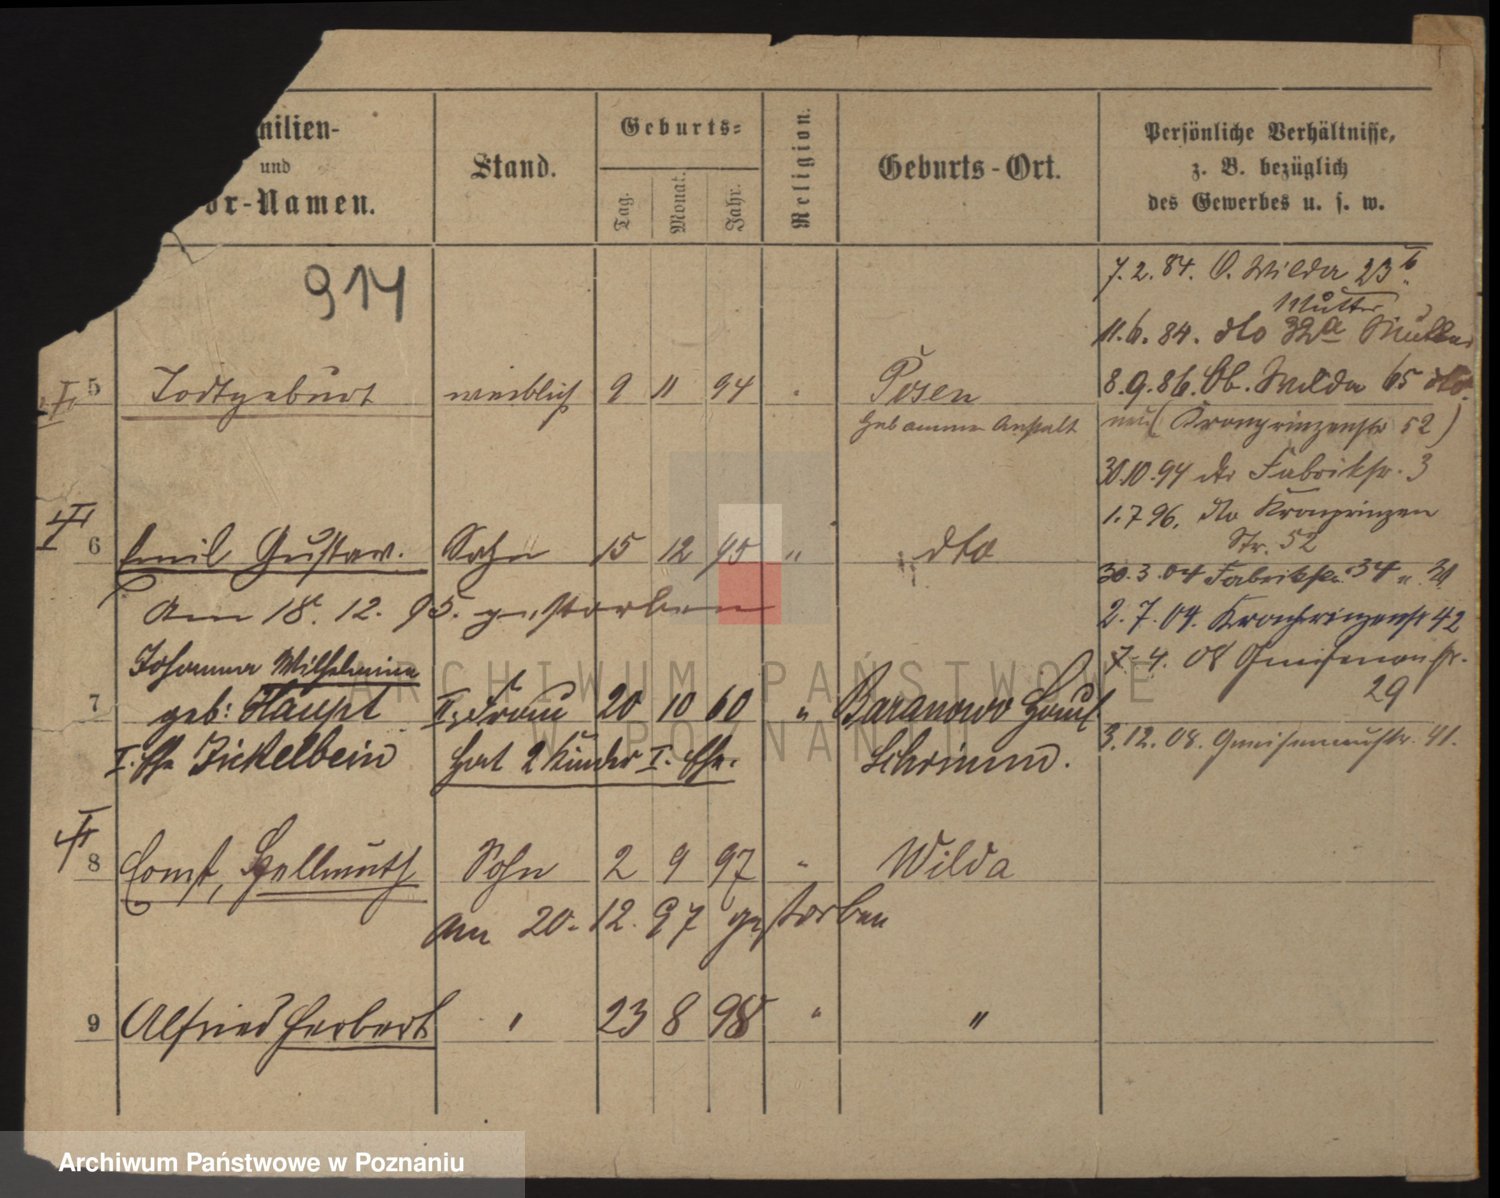 milien-
und
or-Namen.
Stand.
Geburts-
Tag.
Monat.
Jahr.
Religion.
Geburts-Ort.
Persönliche Verhältnisse,
z. B. bezüglich
des Gewerbes u. s. w.
914
7. 2. 84. O. Wilda 23 b
Mutter
11. 6. 84. dto 32a Mutter
5 Todtgeburt weiblich 9 11 94 Posen
8. 9. 86. Ob. Wilda 65 dto.
Hebammen Anstalt
neu (Kronprinzenstr 52)
30.10.94 dto Fabrikstr. 3
1. 7 96. dto Kronprinzen
Str. 52
II
6 Emil Gustav. Sohn 15 12 95 " dto
30. 3. 04 Fabrikstr. 34
am 18. 12. 95. gestorben
2. 7. 04. Kronprinzenstr 42
Johanna Wilhelmine
7. 4. 08 Gneisenaustr.
29
7 geb: Haupt II. Frau 20 10 60 " Baranowo Haul
I. Ehe Zickelbein hat 2 Kinder I. Ehe. Schrimm.
3. 12. 08. Gneisenaustr. 41.
II
8 Ernst, Hellmuth Sohn 2 9 97 " Wilda
am 20. 12. 97 gestorben
9 Alfried Herbert " 23 8 98 " "
ARCHIWUM PAŃSTWOWE
W POZNANIU
Archiwum Państwowe w Poznaniu